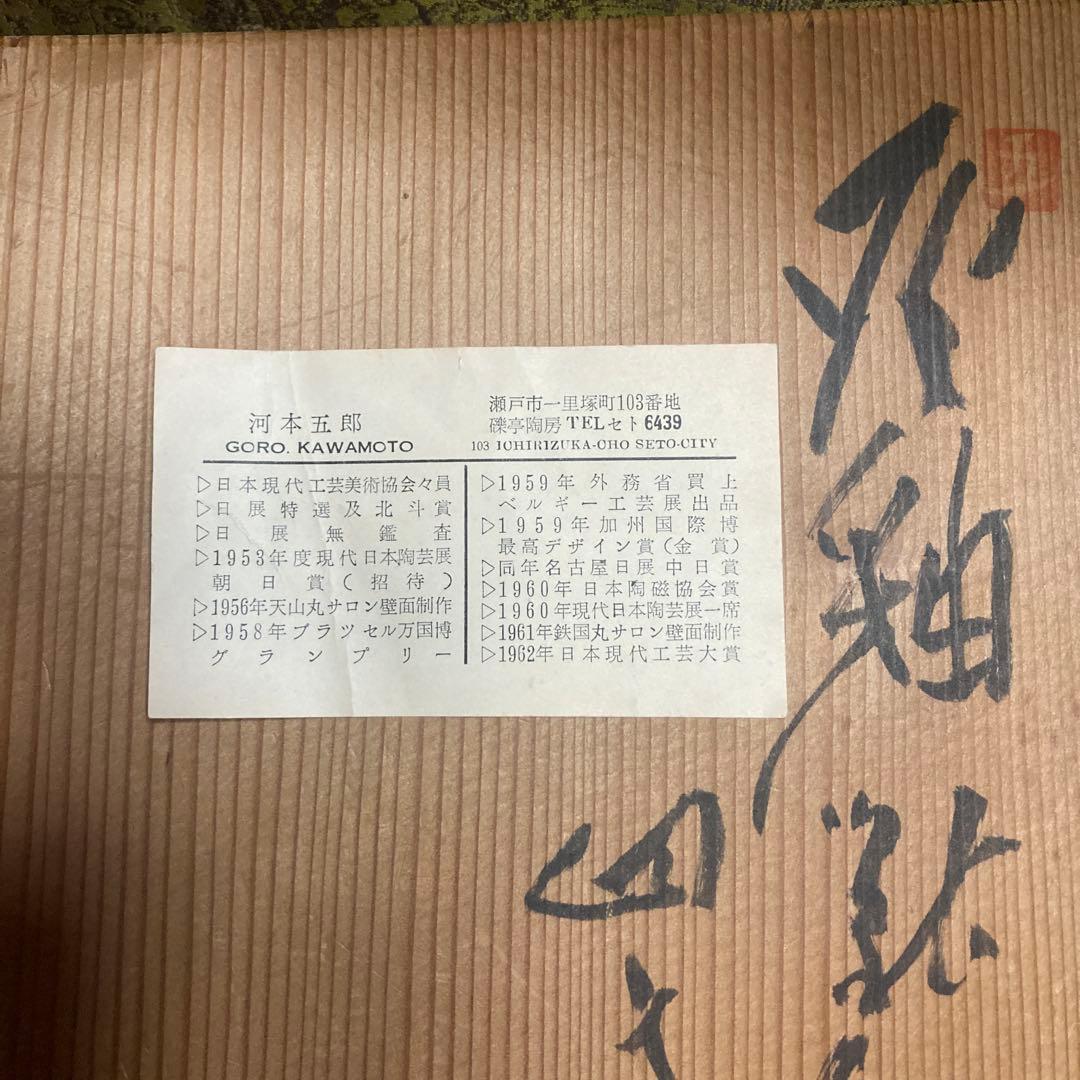 河本五郎
GORO. KAWAMOTO
瀬戸市一里塚町103番地
礫亭陶房 TELセト6439
103 ICHIRIZUKA-CHO SETO-CITY
▷日本現代工芸美術協会々員
▷日展特選及北斗賞
▷日展無鑑査
▷1953年度現代日本陶芸展
朝日賞(招待)
▷1956年天山丸サロン壁面制作
▷1958年ブラツセル万国博
グランプリー
▷1959年外務省買上
ベルギー工芸展出品
▷1959年加州国際博
最高デザイン賞(金賞)
▷同年名古屋日展中日賞
▷1960年日本陶磁協会賞
▷1960年現代日本陶芸展一席
▷1961年鉄国丸サロン壁面制作
▷1962年日本現代工芸大賞
釉